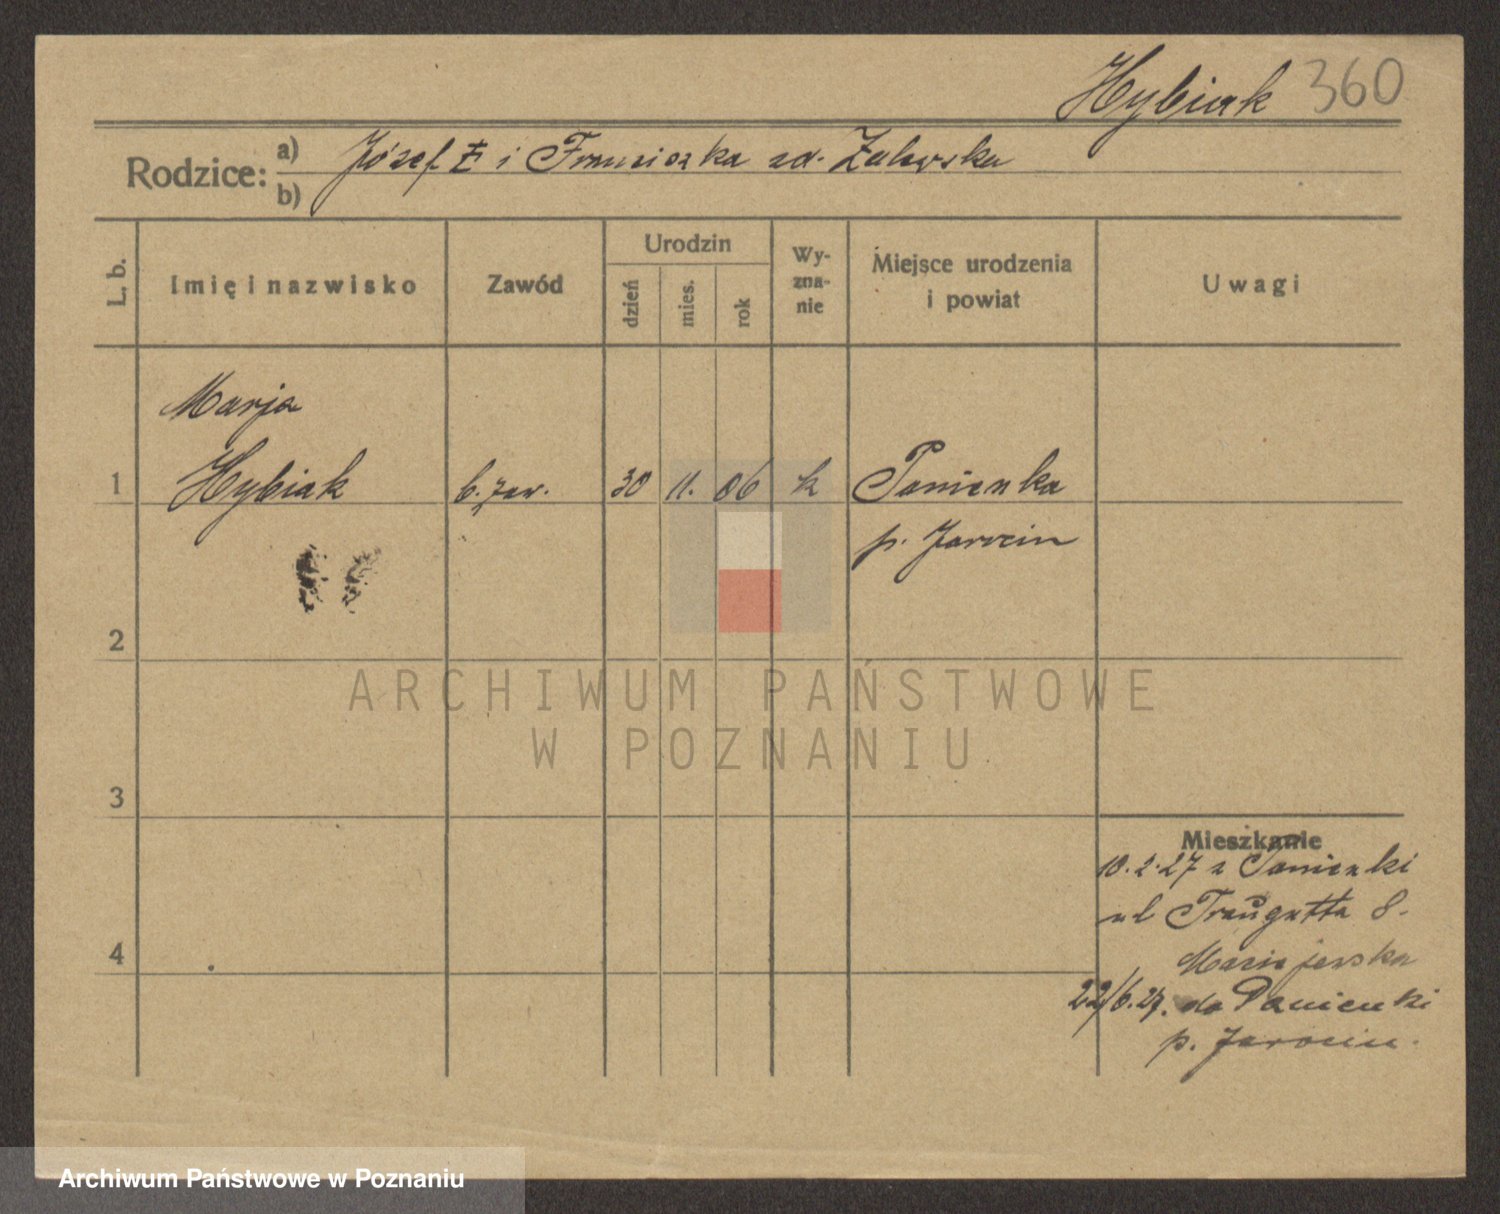 Hybiak 360
Rodzice: a) b) Józef Ŧ i Franciszka zd. Zalewska
L. b.
Imię i nazwisko
Zawód
Urodzin
dzień
mies.
rok
Wy-
zna-
nie
Miejsce urodzenia
i powiat
Uwagi
Marja
1 Hybiak b. zaw. 30 11. 06 k Panienka
p. Jarocin
2
ARCHIWUM PAŃSTWOWE
W POZNANIU
3
Mieszkanie
10.2.27 z Panienki
ul Traugutta 8.
4
22/6.27. do Panienki
p. Jarocin.
Archiwum Państwowe w Poznaniu